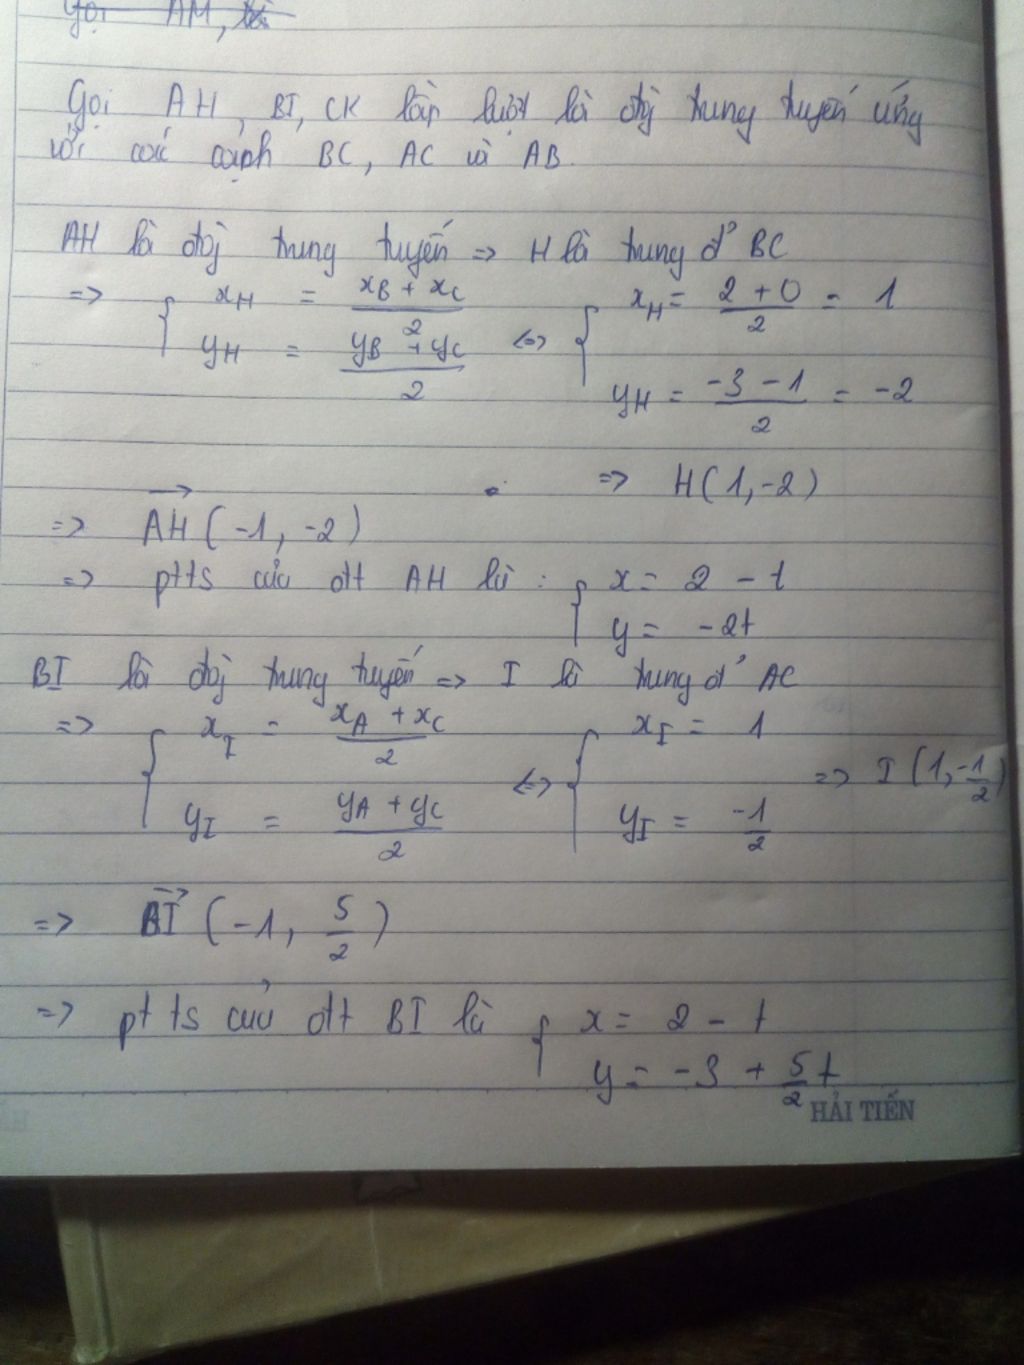 Gọi AM,
Gọi AH, BI, CK lần lượt là đg trung tuyến ứng
với các cạnh BC, AC và AB.
AH là đg trung tuyến => H là trung đ' BC
=> { x_H = (x_B + x_C)/2 <=> { x_H = (2 + 0)/2 = 1
y_H = (y_B + y_C)/2 y_H = (-3 - 1)/2 = -2
=> H(1, -2)
=> AH→ (-1, -2)
=> ptts của đt AH là : { x = 2 - t
y = -2t
BI là đg trung tuyến => I là trung đ' AC
=> { x_I = (x_A + x_C)/2 <=> { x_I = 1 => I(1, -1/2)
y_I = (y_A + y_C)/2 y_I = -1/2
=> BI→ (-1, 5/2)
=> pt ts của đt BI là { x = 2 - t
y = -3 + 5/2 t
HẢI TIẾN